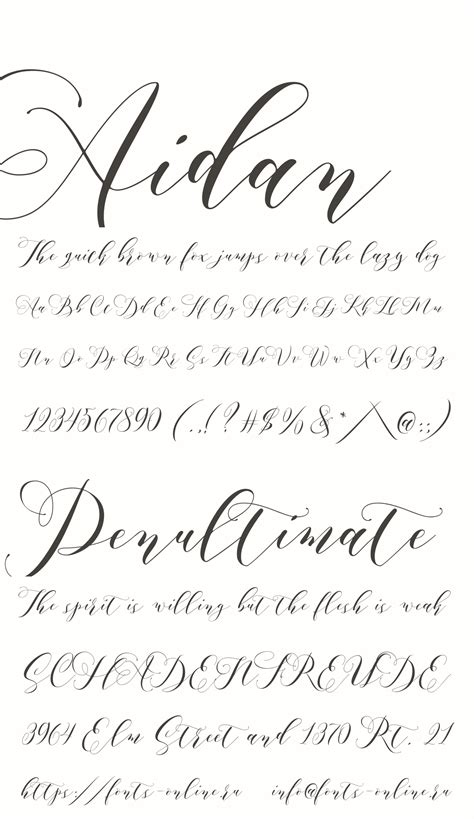 Aidan
The quick brown fox jumps over the lazy dog
Aa Bb Cc Dd Ee Ff Gg Hh Ii Jj Kk Ll Mm
Nn Oo Pp Qq Rr Ss Tt Uu Vv Ww Xx Yy Zz
1234567890 (.,!?#$%&*/\@:;)
Penultimate
The spirit is willing but the flesh is weak
SCHADENFREUDE
3964 Elm Street and 1370 Rt. 21
https://fonts-online.ru info@fonts-online.ru